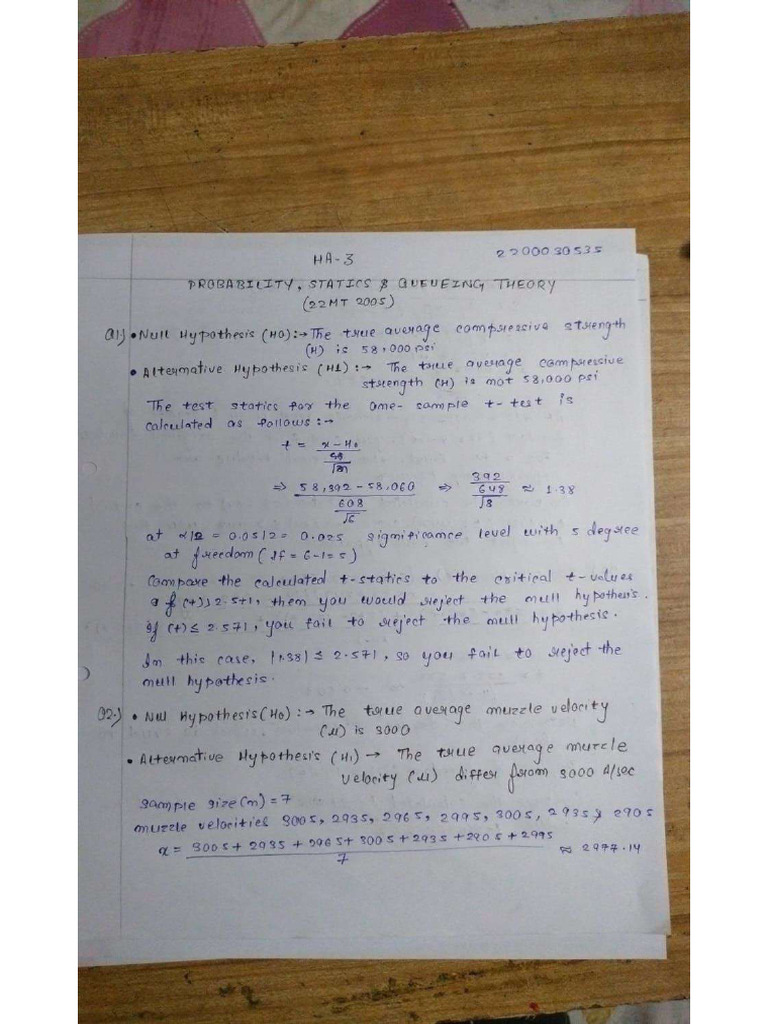 HA-3
2200030535
PROBABILITY, STATICS & QUEUEING THEORY
(22MT 2005)
Q1) • Null Hypothesis (H0) :→ The true average compressive strength
(H) is 58,000 psi
• Alternative Hypothesis (H1) :→ The true average compressive
strength (H) is not 58,000 psi
The test statics for the one-sample t-test is
calculated as follows :→
t = x - H0
√n
⇒ 58,392 - 58,060 ⇒ 392 ≈ 1.38
608 648
√6 √8
at α/2 = 0.05/2 = 0.025 significance level with 5 degree
at freedom (df = 6-1=5)
Compare the calculated t-statics to the critical t-values
If (t) > 2.571, then you would reject the null hypothesis.
If (t) ≤ 2.571, you fail to reject the null hypothesis.
In this case, |1.38| ≤ 2.571, so you fail to reject the
null hypothesis.
Q2.) • Null Hypothesis (H0) :→ The true average muzzle velocity
(μ) is 3000
• Alternative Hypothesis (H1) → The true average muzzle
velocity (μ) differ from 3000 ft/sec
Sample size (n) = 7
muzzle velocities 3005, 2935, 2965, 2995, 3005, 2935, 2905
x = 3005 + 2935 + 2965 + 3005 + 2935 + 2905 + 2995 ≈ 2977.14
7